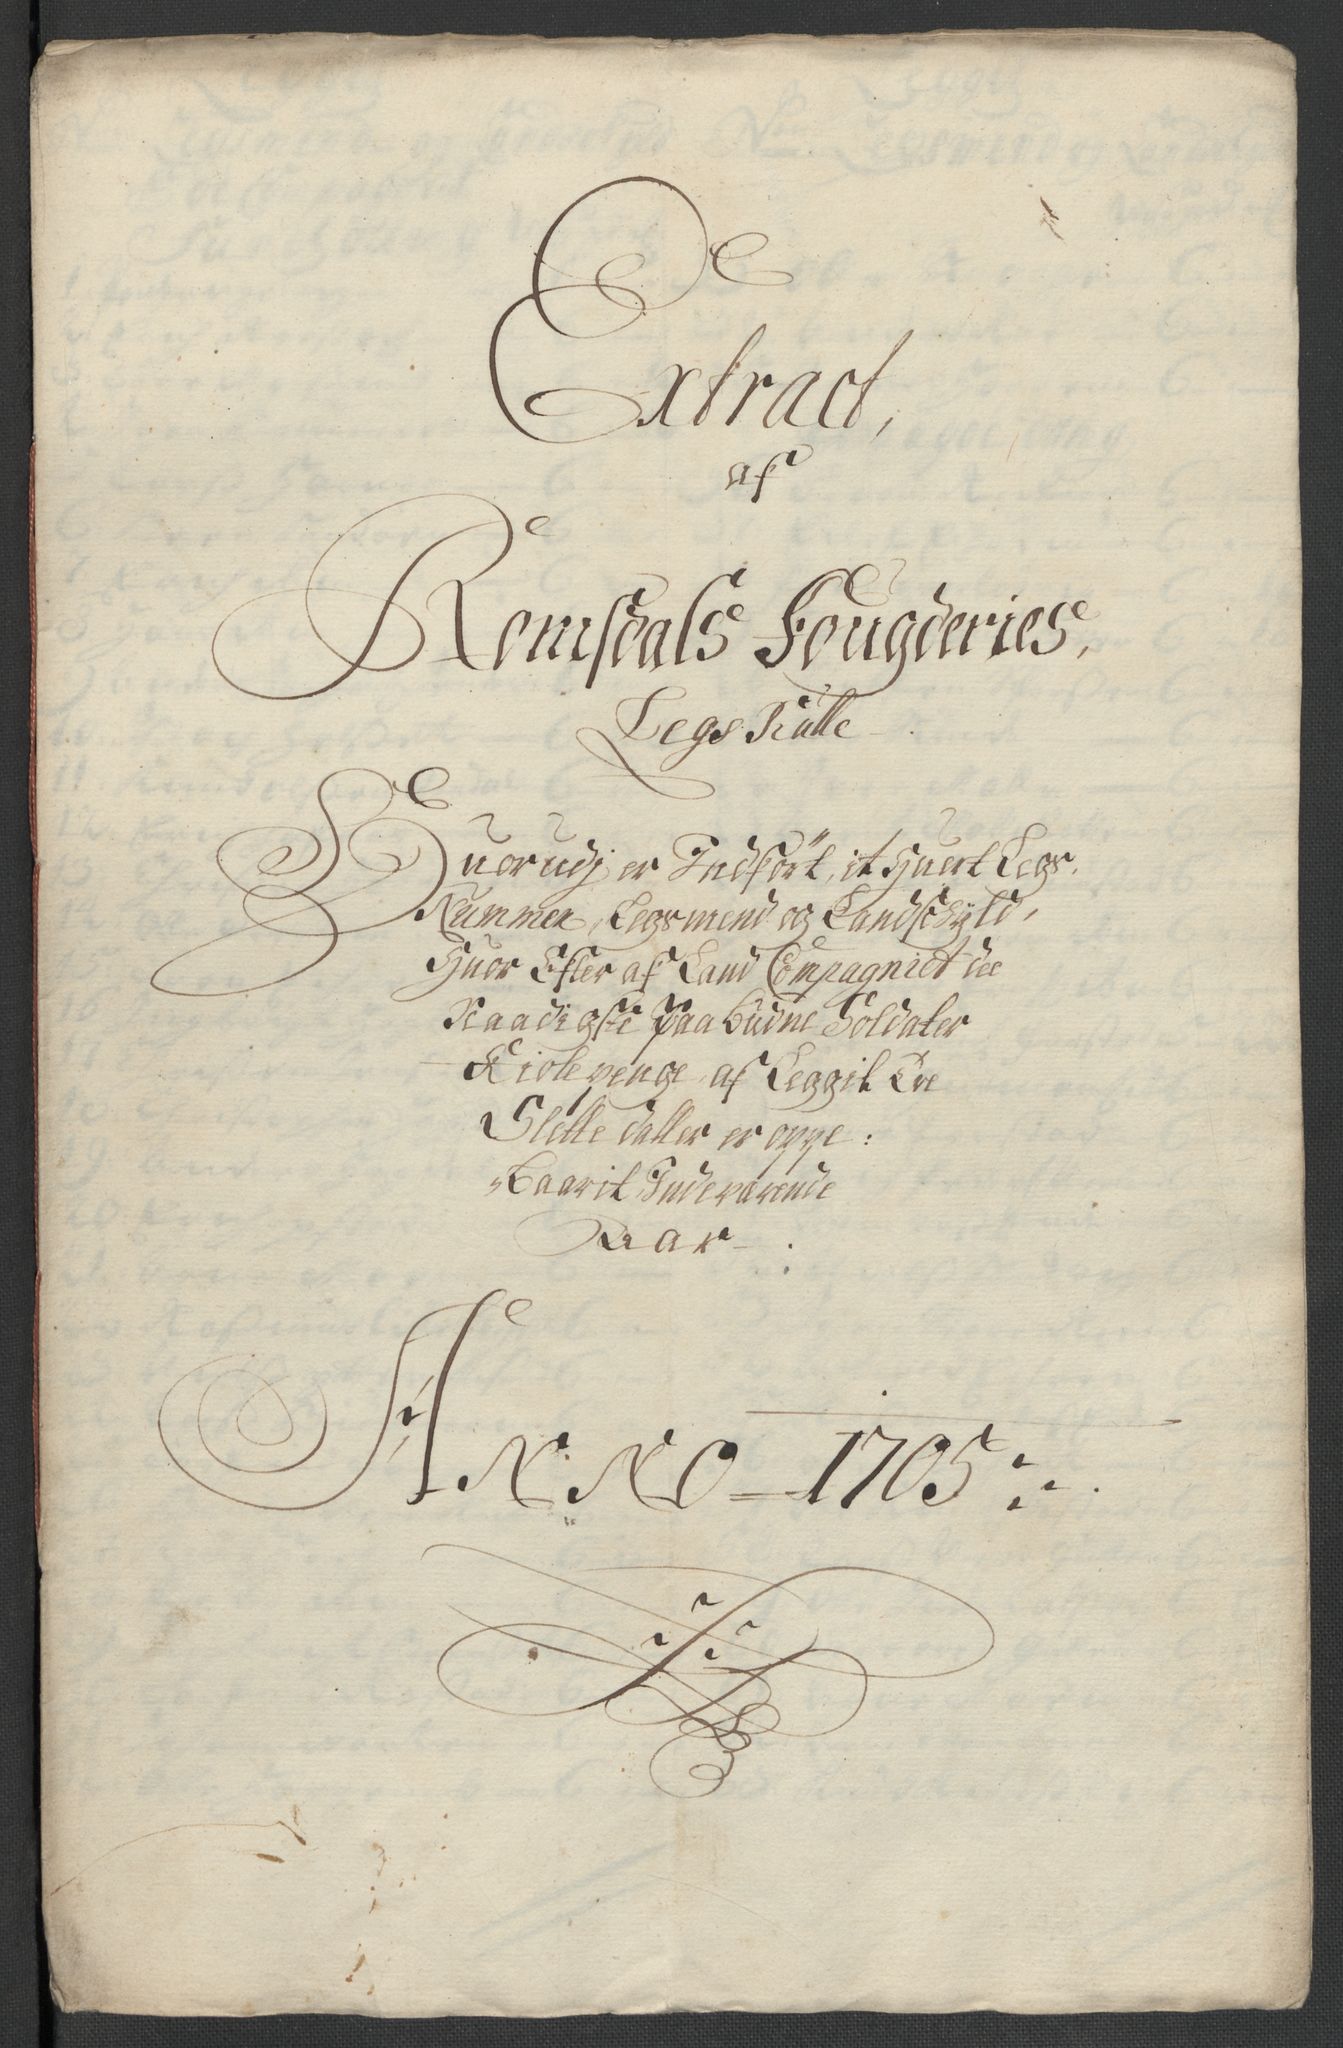 Extract,
af
Romsdals Fougderies,
Legs Rulle
Huorudj er Indført, it huert Legs,
Nummer, Legsmend og Landschyld,
Huor Efter af Land Compagniet de
Naadigste Paabudne Soldater
Kiolepenge af Leggit
Slette daller er oppe:
Baarit Indeværende
Aar
ANNO 1705